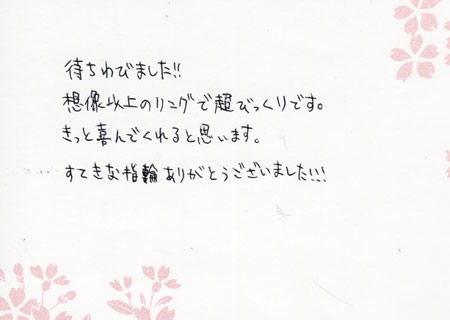 待ちわびました!!
想像以上のリングで超びっくりです。
きっと喜んでくれると思います。
すてきな指輪ありがとうございました!!!